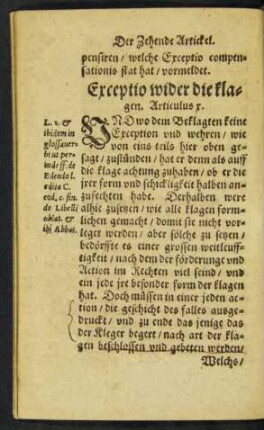 Der Zehende Artickel.
pensiren / welche Exceptio compen-
sationis stat hat / vormeldet.
Exceptio wider die kla-
gen. Articulus x.
VNd wo dem Beklagten keine
Exception vnd wehren / wie
von eins teils hier oben ge-
sagt / zustünden / hat er denn als auff
die klage achtung zuhaben / ob er die
jrer form vnd schickligkeit halben an-
zufechten habe. Derhalben were
alhie zusetzen / wie alle klagen form-
lichen gemacht / domit sie nicht vor-
leget werden / aber solche zu setzen /
bedörffte es einer grossen weitleuff-
tigkeit / nach dem der förderunge vnd
Action im Rechten viel seind / vnd
ein jede jre besonder form der klagen
hat. Doch müssen in einer jeden ac-
tion / die geschicht des falles ausge-
druckt / vnd zu ende das jenige das
der Kleger begert / nach art der kla-
gen beschlossen vnd gebeten werden /
Welchs /
L. 1. &
ibidem in
glossa
de
Edendo l.
edita C.
eod. c. fin.
de Libelli
oblat. &
ibi Abbas.